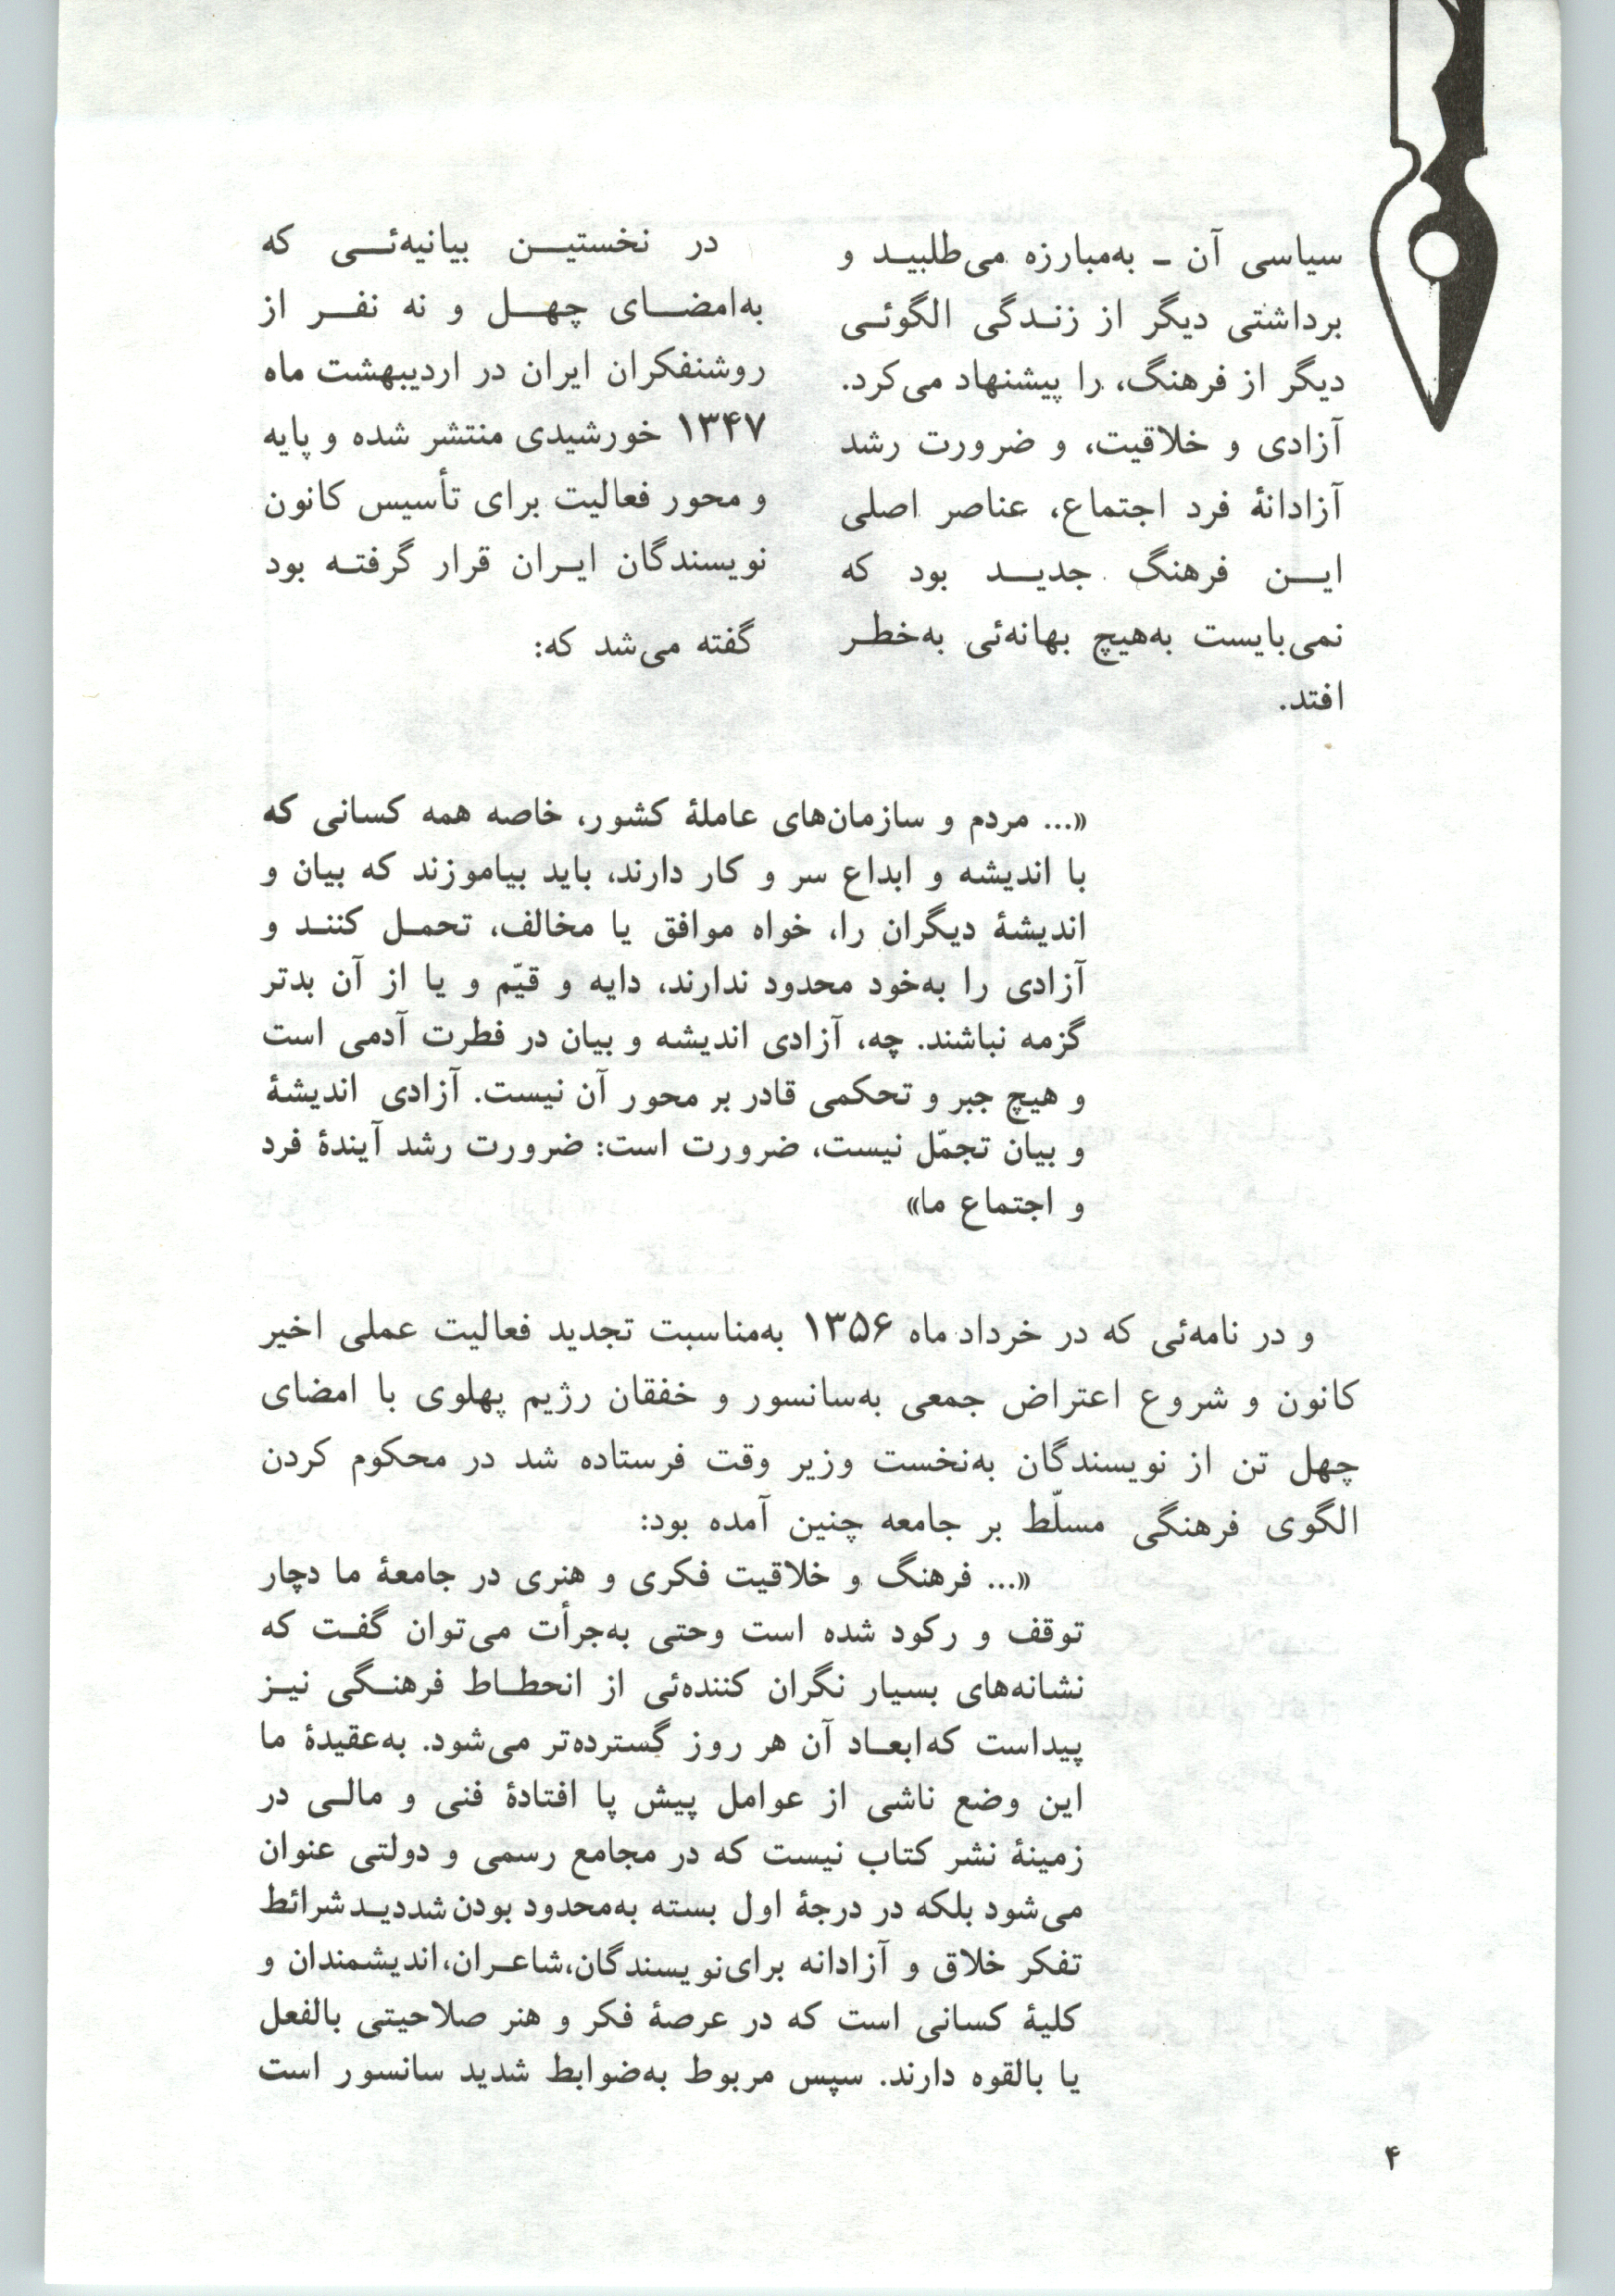 سیاسی آن ـ به‌مبارزه می‌طلبید و
برداشتی دیگر از زندگی الگوئی
دیگر از فرهنگ، را پیشنهاد می‌کرد.
آزادی و خلاقیت، و ضرورت رشد
آزادانهٔ فرد اجتماع، عناصر اصلی
این فرهنگ جدید بود که
نمی‌بایست به‌هیچ بهانه‌ئی به‌خطر
افتد.
در نخستین بیانیه‌ئی که
به‌امضای چهل و نه نفر از
روشنفکران ایران در اردیبهشت ماه
۱۳۴۷ خورشیدی منتشر شده و پایه
و محور فعالیت برای تأسیس کانون
نویسندگان ایران قرار گرفته بود
گفته می‌شد که:
«... مردم و سازمان‌های عاملهٔ کشور، خاصه همه کسانی که
با اندیشه و ابداع سر و کار دارند، باید بیاموزند که بیان و
اندیشهٔ دیگران را، خواه موافق یا مخالف، تحمل کنند و
آزادی را به‌خود محدود ندارند، دایه و قیّم و یا از آن بدتر
گزمه نباشند. چه، آزادی اندیشه و بیان در فطرت آدمی است
و هیچ جبر و تحکمی قادر بر محور آن نیست. آزادی اندیشهٔ
و بیان تجمّل نیست، ضرورت است: ضرورت رشد آیندهٔ فرد
و اجتماع ما»
و در نامه‌ئی که در خرداد ماه ۱۳۵۶ به‌مناسبت تجدید فعالیت عملی اخیر
کانون و شروع اعتراض جمعی به‌سانسور و خفقان رژیم پهلوی با امضای
چهل تن از نویسندگان به‌نخست وزیر وقت فرستاده شد در محکوم کردن
الگوی فرهنگی مسلّط بر جامعه چنین آمده بود:
«... فرهنگ و خلاقیت فکری و هنری در جامعهٔ ما دچار
توقف و رکود شده است وحتی به‌جرأت می‌توان گفت که
نشانه‌های بسیار نگران کننده‌ئی از انحطاط فرهنگی نیز
پیداست که‌ابعاد آن هر روز گسترده‌تر می‌شود. به‌عقیدهٔ ما
این وضع ناشی از عوامل پیش پا افتادهٔ فنی و مالی در
زمینهٔ نشر کتاب نیست که در مجامع رسمی و دولتی عنوان
می‌شود بلکه در درجهٔ اول بسته به‌محدود بودن شددید شرائط
تفکر خلاق و آزادانه برای‌نویسندگان،شاعران،اندیشمندان و
کلیهٔ کسانی است که در عرصهٔ فکر و هنر صلاحیتی بالفعل
یا بالقوه دارند. سپس مربوط به‌ضوابط شدید سانسور است
۴